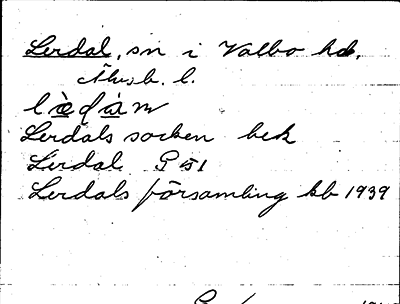 Lerdal, sn i Valbo hd.
Älvsb. l.
Lerdals socken bek
Lerdal P 51
Lerdals församling kb 1939